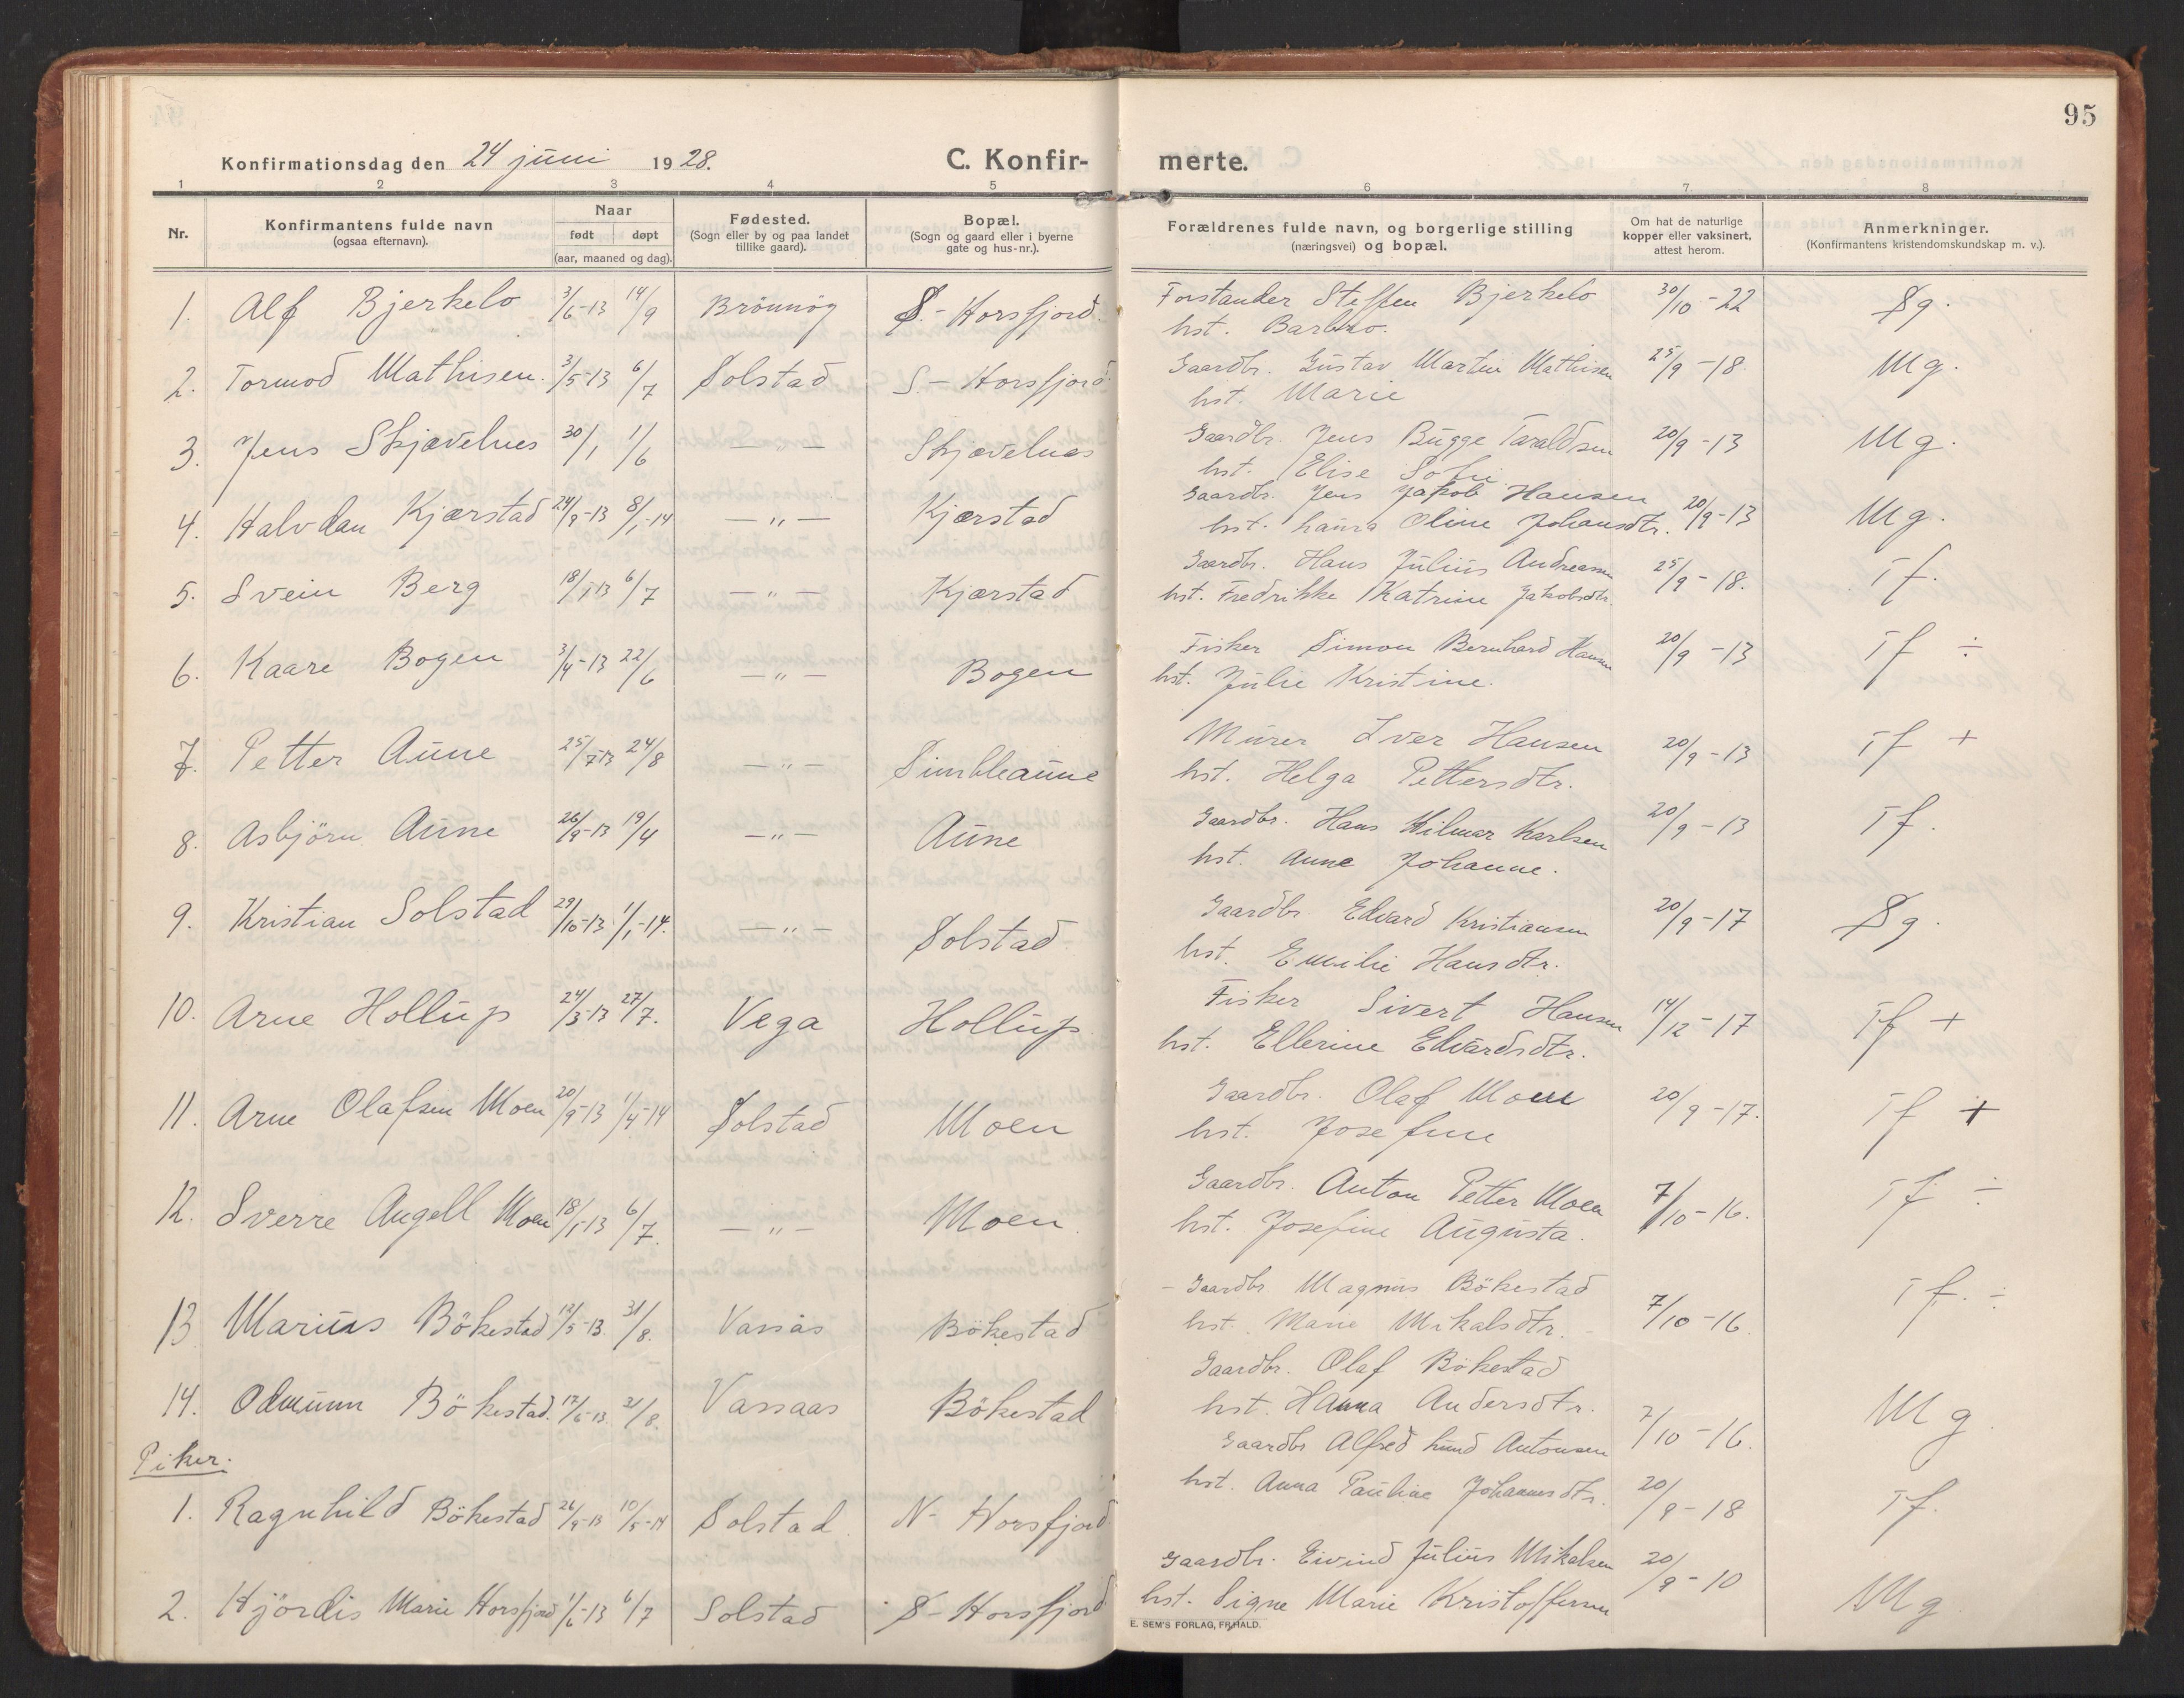 95
Konfirmationsdag den 24 juni 1928. C. Konfir- merte.
1 2 3 4 5 6 7 8
Nr. Konfirmantens fulde navn (ogsaa efternavn). Naar født døpt (aar, maaned og dag). Fødested. (Sogn eller by og paa landet tillike gaard). Bopæl. (Sogn og gaard eller i byerne gate og hus-nr.). Forældrenes fulde navn, og borgerlige stilling (næringsvei) og bopæl. Om hat de naturlige kopper eller vaksinert, attest herom. Anmerkninger. (Konfirmantens kristendomskundskap m. v.).
1. Alf Bjerkelo 3/6-13 14/9 Brönnöy S.-Horsfjord. Forstander Steffen Bjerkelo 30/10-22 Sg.
hst. Barbro.
2. Tormod Mathisen. 3/5-13 6/7 Solstad S.-Horsfjord. Gaardbr. Gustav Martin Mathisen 25/9-18. Mg.
hst. Marie
3. Jens Skjævelnes 30/1 1/6 — " — Skjævelnes Gaardbr. Jens Bugge Taraldsen 20/9-13 Mg.
hst. Elise Sofie
4. Halvdan Kjærstad 24/9-13 8/1-14 — " — Kjærstad Gaardbr. Jens Jakob Hansen 20/9-13 Mg.
hst. Laura Oline Johansdtr.
5. Svein Berg 18/5-13 6/7 — " — Kjærstad Gaardbr. Hans Julius Andreassen 25/9-18. Tf.
hst. Fredrikke Katrine Jakobsdtr.
6. Kaare Bogen 3/4-13 22/6 — " — Bogen Fisker Simon Bernhard Hansen 20/9-13 Tf ÷
hst. Julie Kristine.
7. Petter Aune 25/7-13 24/8 — " — Simbleaune Murer Iver Hansen 20/9-13 Tf +
hst. Helga Pettersdtr.
8. Asbjörn Aune 26/9-13 19/4 — " — Aune Gaardbr. Hans Hilmar Karlsen 20/9-13 Tf.
hst. Anna Johanne.
9. Kristian Solstad 29/10-13 1/1-14. — " — Solstad. Gaardbr Edvard Kristiansen 20/9-17 Sg.
hst. Emilie Hansdtr.
10. Arne Hollup 24/3-13 27/7. Vega Hollup. Fisker Sivert Hansen 14/12-17 Tf +
hst. Ellerine Edvardsdtr.
11. Arne Olafsen Moen 20/9-13 1/4-14 Solstad Moen Gaardbr. Olaf Moen 20/9-17. Tf +
hst. Josefine
12. Sverre Angell Moen 18/5-13 6/7. — " — Moen. Gaardbr. Anton Petter Moen 7/10-16. Tf ÷
hst. Josefine Augusta.
13 Marius Bökestad 12/5-13. 31/8. Vassås Bökestad Gaardbr Magnus Bökestad 7/10-16. Tf. ÷
hst. Marie Mikalsdtr.
14. Odmunn Bökestad. 17/6-13. 31/8. Vassaas Bökestad Gaardbr. Olaf Bökestad 7/10-16. Mg.
hst. Hanna Andersdtr.
Piker.
1. Ragnhild Bökestad 26/9-13 10/5-14 Solstad. N-Horsfjord Gaardbr Alfred Lund Antonsen 20/9-18 Tf.
hst. Anna Pauline Johannesdtr.
2. Hjördis Marie Horsfjord 1/6-13 6/7 Solstad S-Horsfjord Gaardbr. Eivind Julius Mikalsen 20/9-10 Mg
hst. Signe Marie Kristoffersen
E. SEM'S FORLAG, FR.HALD.